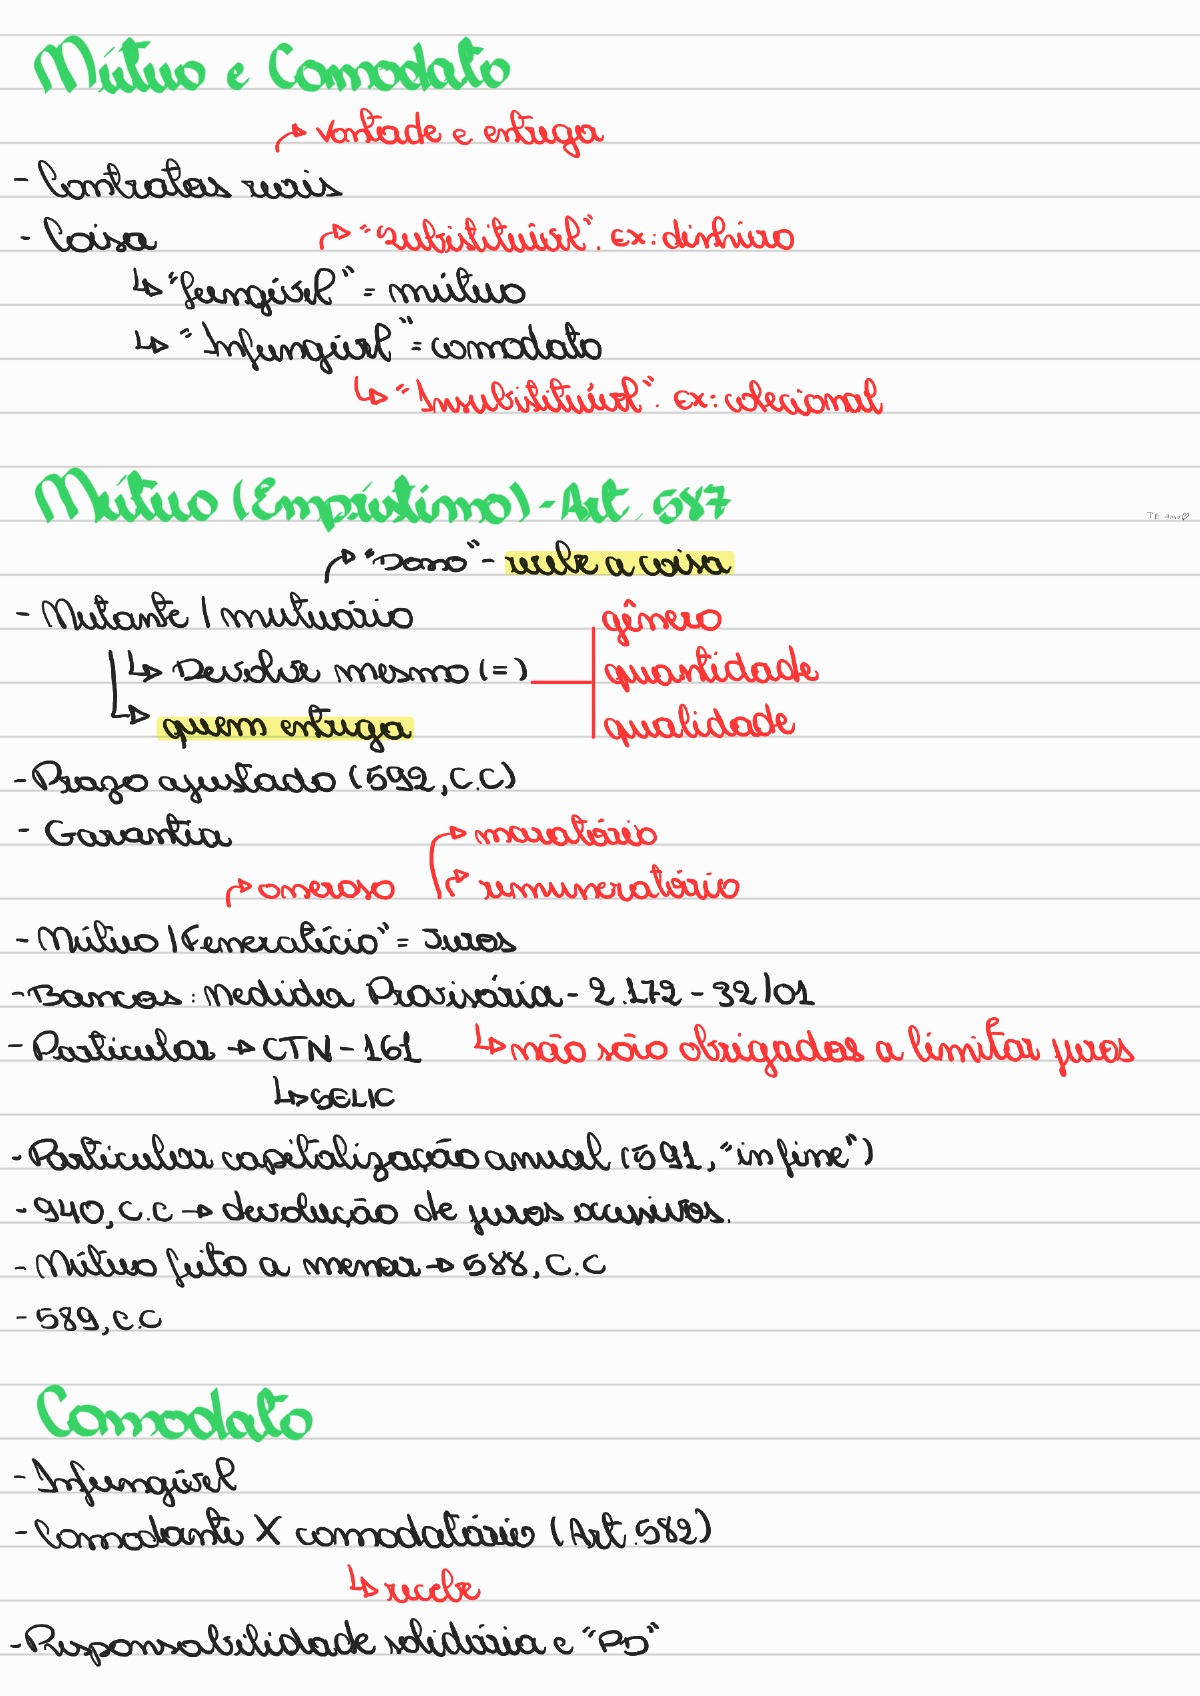 Mútuo e Comodato
↱ vontade e entrega
- Contratos reais
- Coisa ↱ "Subistituível". Ex: dinhiro
↳ "fungível" = mútuo
↳ "Infungível" = comodato
↳ "Insubistituível". Ex: colecional
Mútuo (Empréstimo) - Art. 587
TE Amo♡
↱ "Dono" - recebe a coisa
- Mutante / mutuário
gênero
↳ Devolve mesmo (=)
quantidade
↳ quem entrega
qualidade
- Prazo ajustado (592, C.C)
- Garantia ↱ moratório
↱ oneroso ↱ remuneratório
- Mútuo "Feneratício" = Juros
- Bancos: Medidea Provisória - 2.172 - 32/01
- Particular → CTN - 161 ↳ não são obrigados a limitar juros
↳ SELIC
- Particular capitalização anual (591, "in fine")
- 940, C.C → devolução de juros excessivos.
- Mútuo feito a menor → 588, C.C
- 589, C.C
Comodato
- Infungível
- Comodante X comodatário (Art. 582)
↳ recebe
- Responsabilidade solidária e "PD"